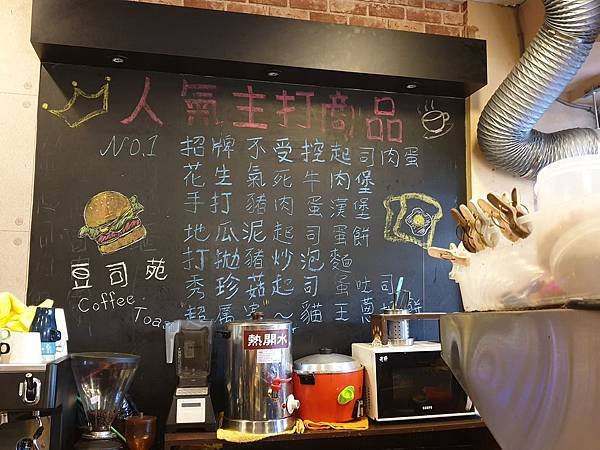 人氣主打商品
NO.1 招牌不受控起司肉蛋
花生氣死牛肉堡
手打豬肉蛋漢堡
地瓜泥起司蛋餅
打拋豬炒泡麵
秀珍菇起司蛋吐司
豆司苑
Coffee
熱開水